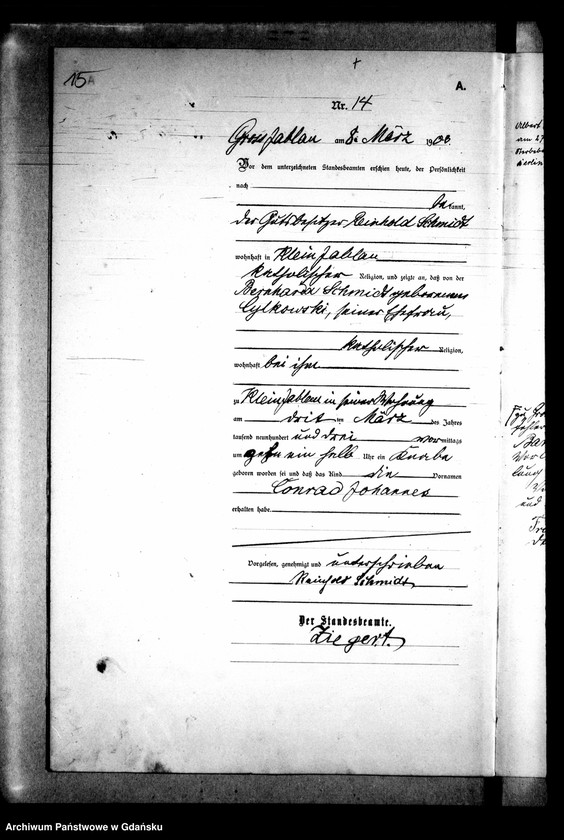 15A
A.
Nr. 14
Gross Jablau am 8. März 1903.
Vor dem unterzeichneten Standesbeamten erschien heute, der Persönlichkeit
nach
bekannt,
der Gutsbesitzer Reinhold Schmidt
wohnhaft in Klein Jablau
katholischer Religion, und zeigte an, daß von der
Bernharda Schmidt geborenen
Cylkowski, seiner Ehefrau,
katholischer Religion,
wohnhaft bei ihm
zu Klein Jablau in seiner Wohnung
am dritten März des Jahres
tausend neunhundert und drei vormittags
um zehn ein halb Uhr ein Knabe
geboren worden sei und daß das Kind die Vornamen
Conrad Johannes
erhalten habe.
Vorgelesen, genehmigt und unterschrieben
Reinhold Schmidt
Der Standesbeamte.
Ziegert.
Archiwum Państwowe w Gdańsku